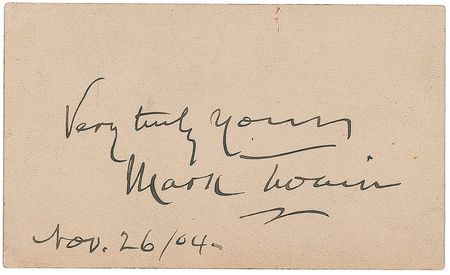 Very truly yours
Mark Twain
Nov. 26/04-